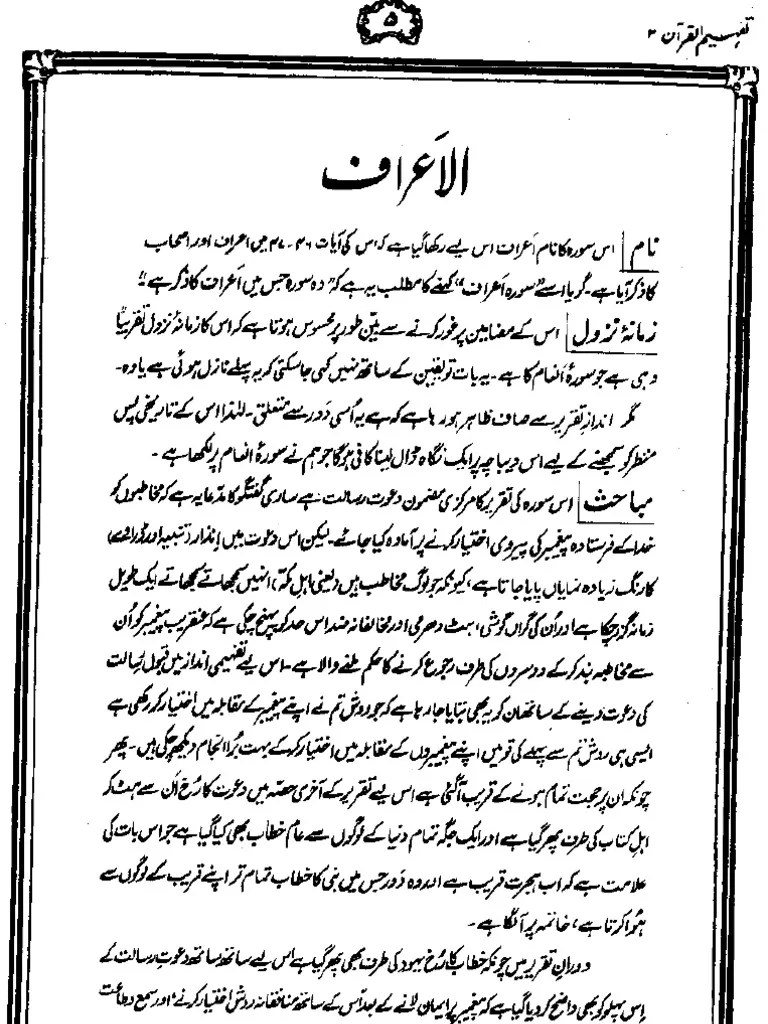 تفہیم القرآن ۲
۵
الاعراف
نام اس سورہ کا نام اعراف اس لیے رکھا گیا ہے کہ اس کی آیات ۴۶-۴۷ میں اعراف اور اصحاب
کا ذکر آیا ہے۔ گویا اسے ”سورہ اعراف“ کہنے کا مطلب یہ ہے کہ ”وہ سورہ جس میں اَعراف کا ذکر ہے“!
زمانۂ نزول اس کے مضامین پر غور کرنے سے بیّن طور پر محسوس ہوتا ہے کہ اس کا زمانۂ نزول تقریباً
وہی ہے جو سورۂ انعام کا ہے۔ یہ بات تو یقین کے ساتھ نہیں کہی جا سکتی کہ یہ پہلے نازل ہوئی ہے یا وہ۔
مگر اندازِ تقریر سے صاف ظاہر ہو رہا ہے کہ ہے یہ اُسی دَور سے متعلق۔ لہٰذا اس کے تاریخی پس
منظر کو سمجھنے کے لیے اس دیباچہ پر ایک نگاہ ڈال لینا کافی ہوگا جو ہم نے سورۂ انعام پر لکھا ہے۔
مباحث اس سورہ کی تقریر کا مرکزی مضمون دعوت رسالت ہے ساری گفتگو کا مدّعا یہ ہے کہ مخاطبوں کو
خدا کے فرستادہ پیغمبر کی پیروی اختیار کرنے پر آمادہ کیا جائے۔ لیکن اس دعوت میں اِنذار (تنبیہ اور ڈراوے)
کا رنگ زیادہ نمایاں پایا جاتا ہے، کیونکہ جو لوگ مخاطب ہیں (یعنی اہل مکّہ) انہیں سمجھاتے سمجھاتے ایک طویل
زمانہ گزر چکا ہے اور اُن کی گراں گوشی، ہٹ دھرمی اور مخالفانہ ضد اس حد کو پہنچ چکی ہے کہ عنقریب پیغمبر کو اُن
سے مخاطبہ بند کر کے دوسروں کی طرف رجوع کرنے کا حکم ملنے والا ہے۔ اس لیے تفہیمی انداز میں قبول رسالت
کی دعوت دینے کے ساتھ ان کو یہ بھی بتایا جا رہا ہے کہ جو روش تم نے اپنے پیغمبر کے مقابلہ میں اختیار کر رکھی ہے
ایسی ہی روش تم سے پہلے کی قومیں اپنے پیغمبروں کے مقابلہ میں اختیار کر کے بہت بُرا انجام دیکھ چکی ہیں۔ پھر
چونکہ ان پر حجت تمام ہونے کے قریب آ گئی ہے اس لیے تقریر کے آخری حصّہ میں دعوت کا رُخ اُن سے ہٹ کر
اہلِ کتاب کی طرف پھر گیا ہے اور ایک جگہ تمام دنیا کے لوگوں سے عام خطاب بھی کیا گیا ہے جو اس بات کی
علامت ہے کہ اب ہجرت قریب ہے اور وہ دَور جس میں نبی کا خطاب تمام تر اپنے قریب کے لوگوں سے
ہُوا کرتا ہے، خاتمہ پر آ لگا ہے۔
دورانِ تقریر میں چونکہ خطاب کا رُخ یہود کی طرف بھی پھر گیا ہے اس لیے ساتھ ساتھ دعوتِ رسالت کے
اِس پہلو کو بھی واضح کر دیا گیا ہے کہ پیغمبر پر ایمان لانے کے بعد اُس کے ساتھ منافقانہ روش اختیار کرنے، اور سمع و طاعت